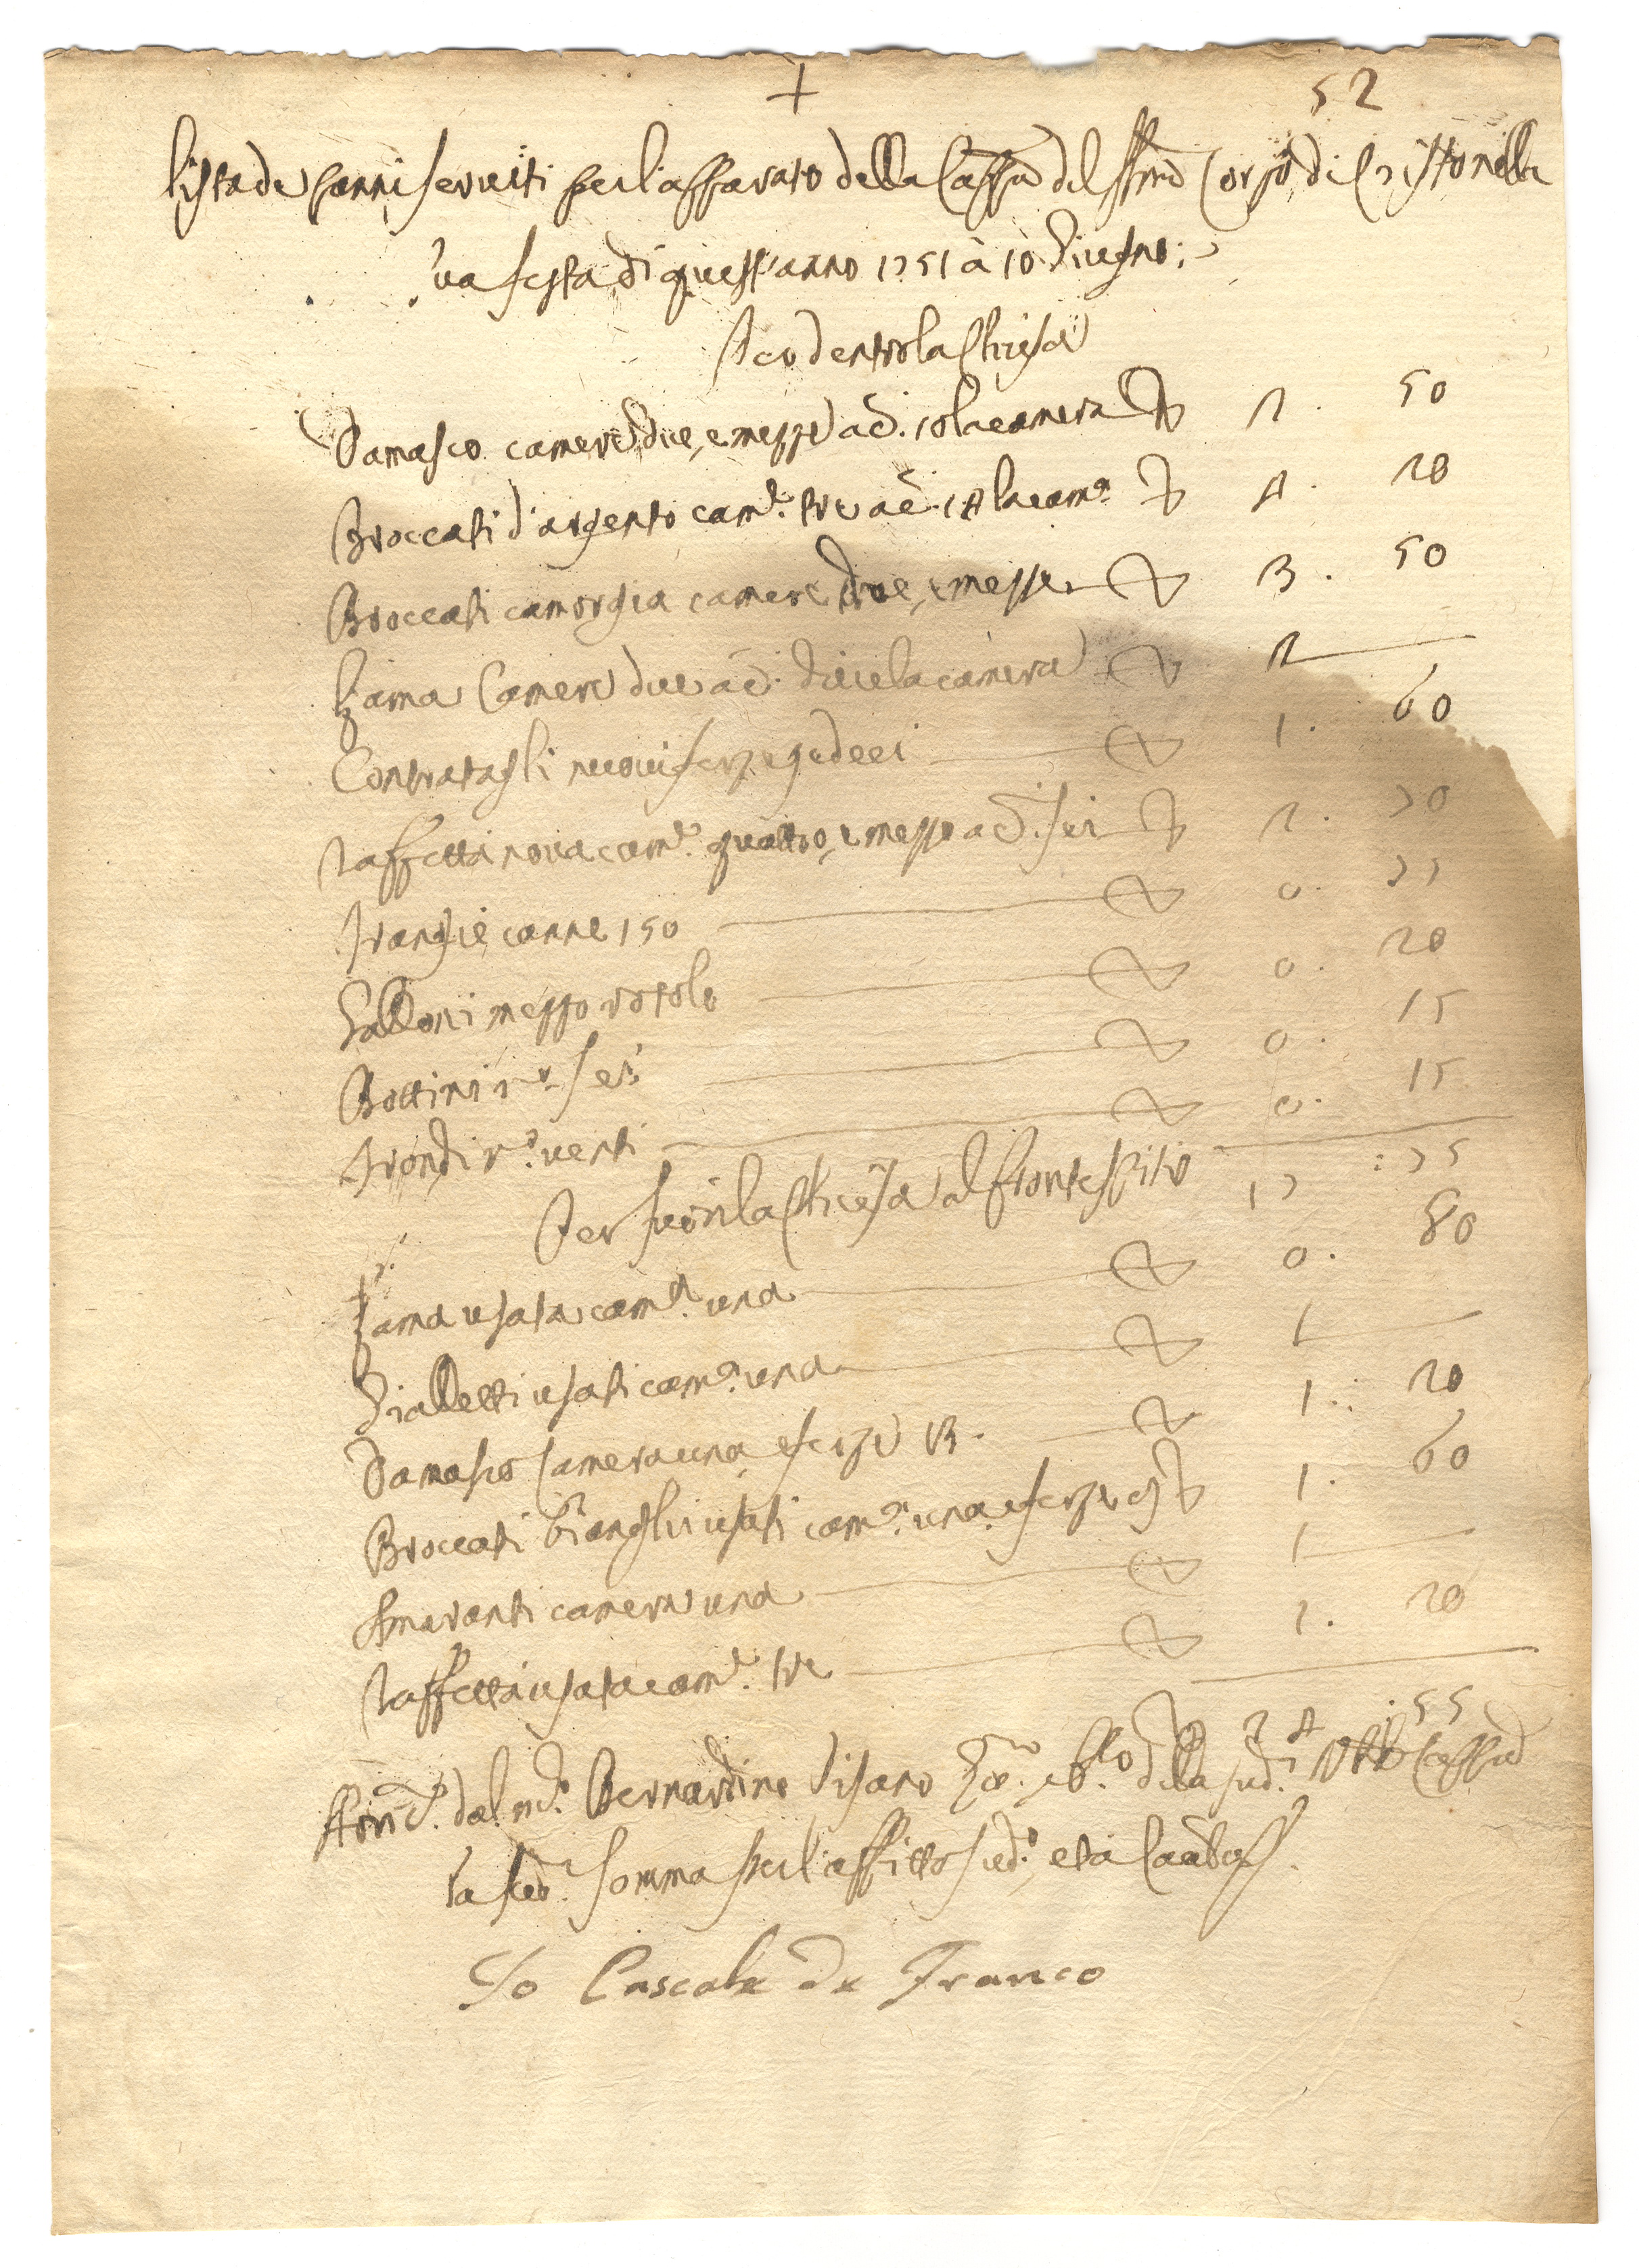 +
52
Lista de panni serviti per l'apparato della Capp.a del SS.mo Corpo di Cristo nella
sua festa di quest'anno 1751 à 10 Giugno:
Per dentro la Chiesa
Damasco camere due, e mezze a d. 10 la camera D 2. 50
Broccati d'argento cam.e tre a c. 14 la cam.a D 4. 20
Broccati camorgia camere due, e mezze D 3. 50
Lama Camere due a d. dieci la camera D 2
Contratagli nuovi ferze sedeci D 1. 60
Taffettà nova cam.e quattro, e mezzo a d. sei D 2. 70
Frangie canne 150 D 0. 75
Galloni mezzo rotolo D 0. 20
Bottini n.o sei D 0. 15
Frondi n.o venti D 0. 15
17 : 75
Per fuori la Chiesa al frontespitio
Lama usata cam.a una D 0. 80
Gialletti usati cam.a una D 1
Damasco Camera una, e ferze 3. D 1. 20
Broccati bianchi usati cam.a una e ferze D 1. 60
Amaranti camera una D 1
Taffettà usata cam.e tre D 1. 20
D 24. 55
dal m.o Bernardino Pisano della sud.a Capp.a
la sud.a somma per l'affitto sud.o, et à
Io Pascale de Franco